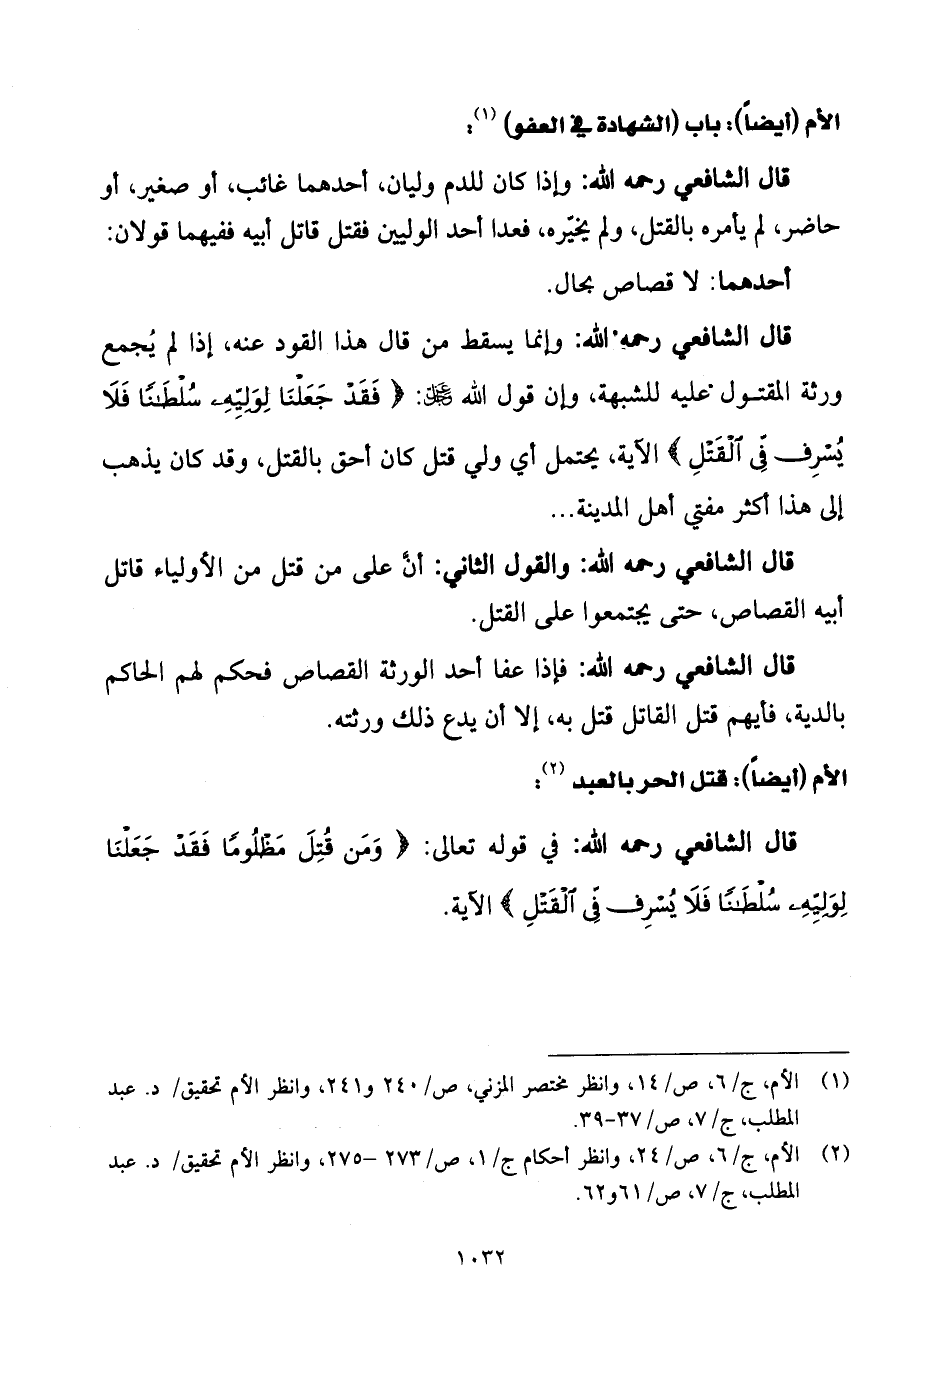 الأم (أيضاً): باب (الشهادة في العفو) (١):
قال الشافعي رحمه الله: وإذا كان للدم وليان، أحدهما غائب، أو صغير، أو
حاضر، لم يأمره بالقتل، ولم يخيّره، فعدا أحد الوليين فقتل قاتل أبيه ففيهما قولان:
أحدهما: لا قصاص بحال.
قال الشافعي رحمه الله: وإنما يسقط من قال هذا القود عنه، إذا لم يُجمع
ورثة المقتول عليه للشبهة، وإن قول الله ﷻ: ﴿ فَقَدْ جَعَلْنَا لِوَلِيِّهِۦ سُلْطَـٰنًا فَلَا
يُسْرِف فِّى ٱلْقَتْلِ ﴾ الآية، يحتمل أي ولي قتل كان أحق بالقتل، وقد كان يذهب
إلى هذا أكثر مفتي أهل المدينة...
قال الشافعي رحمه الله: والقول الثاني: أنَّ على من قتل من الأولياء قاتل
أبيه القصاص، حتى يجتمعوا على القتل.
قال الشافعي رحمه الله: فإذا عفا أحد الورثة القصاص فحكم لهم الحاكم
بالدية، فأيهم قتل القاتل قتل به، إلا أن يدع ذلك ورثته.
الأم (أيضاً): قتل الحر بالعبد (٢):
قال الشافعي رحمه الله: في قوله تعالى: ﴿ وَمَن قُتِلَ مَظْلُومًا فَقَدْ جَعَلْنَا
لِوَلِيِّهِۦ سُلْطَـٰنًا فَلَا يُسْرِف فِّى ٱلْقَتْلِ ﴾ الآية.
(١) الأم، ج/٦، ص/١٤، وانظر مختصر المزني، ص/٢٤٠ و٢٤١، وانظر الأم تحقيق/ د. عبد
المطلب، ج/٧، ص/٣٧-٣٩.
(٢) الأم، ج/٦، ص/٢٤، وانظر أحكام ج/١، ص/٢٧٣ -٢٧٥، وانظر الأم تحقيق/ د. عبد
المطلب، ج/٧، ص/٦١و٦٢.
١٠٣٢